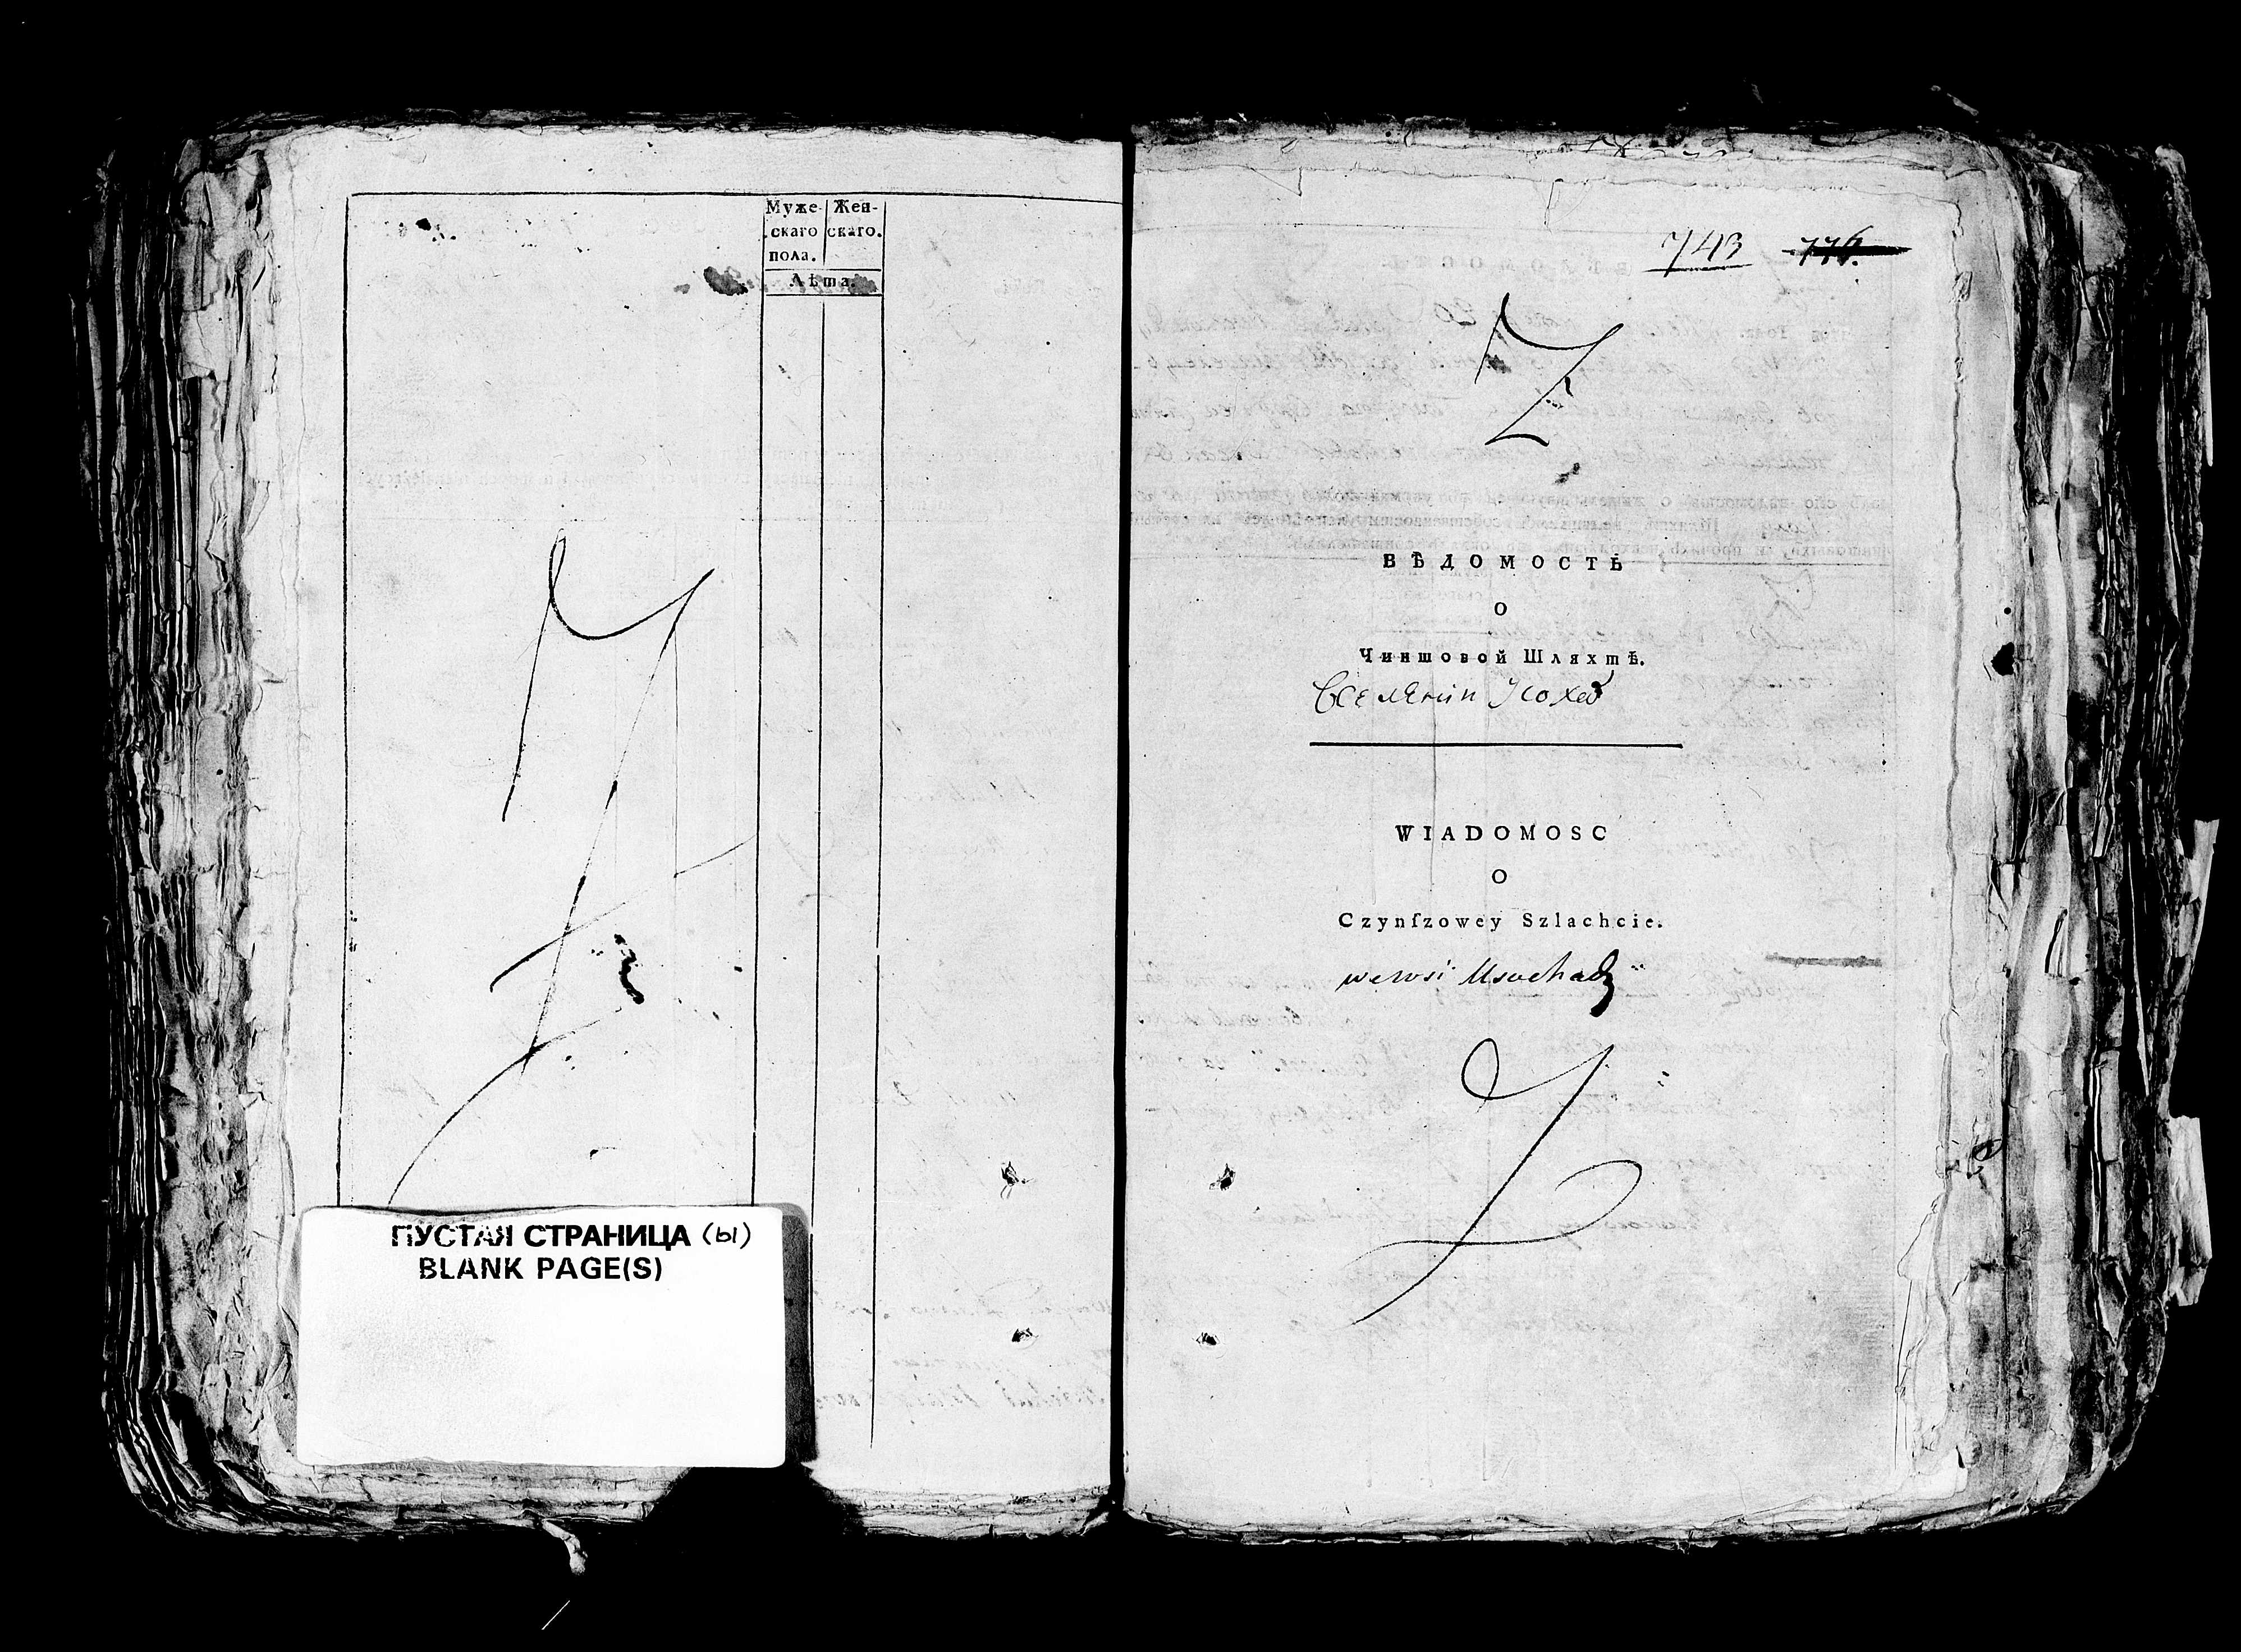 Муже- Жен-
скаго скаго.
пола.
Лѣта.
ПУСТАЯ СТРАНИЦА (ы)
BLANK PAGE(S)
743 776.
ВѢДОМОСТЬ
О
Чиншовой Шляхтѣ.
WIADOMOSC
O
Czynſzowey Szlachcie.
wewsi Usochach